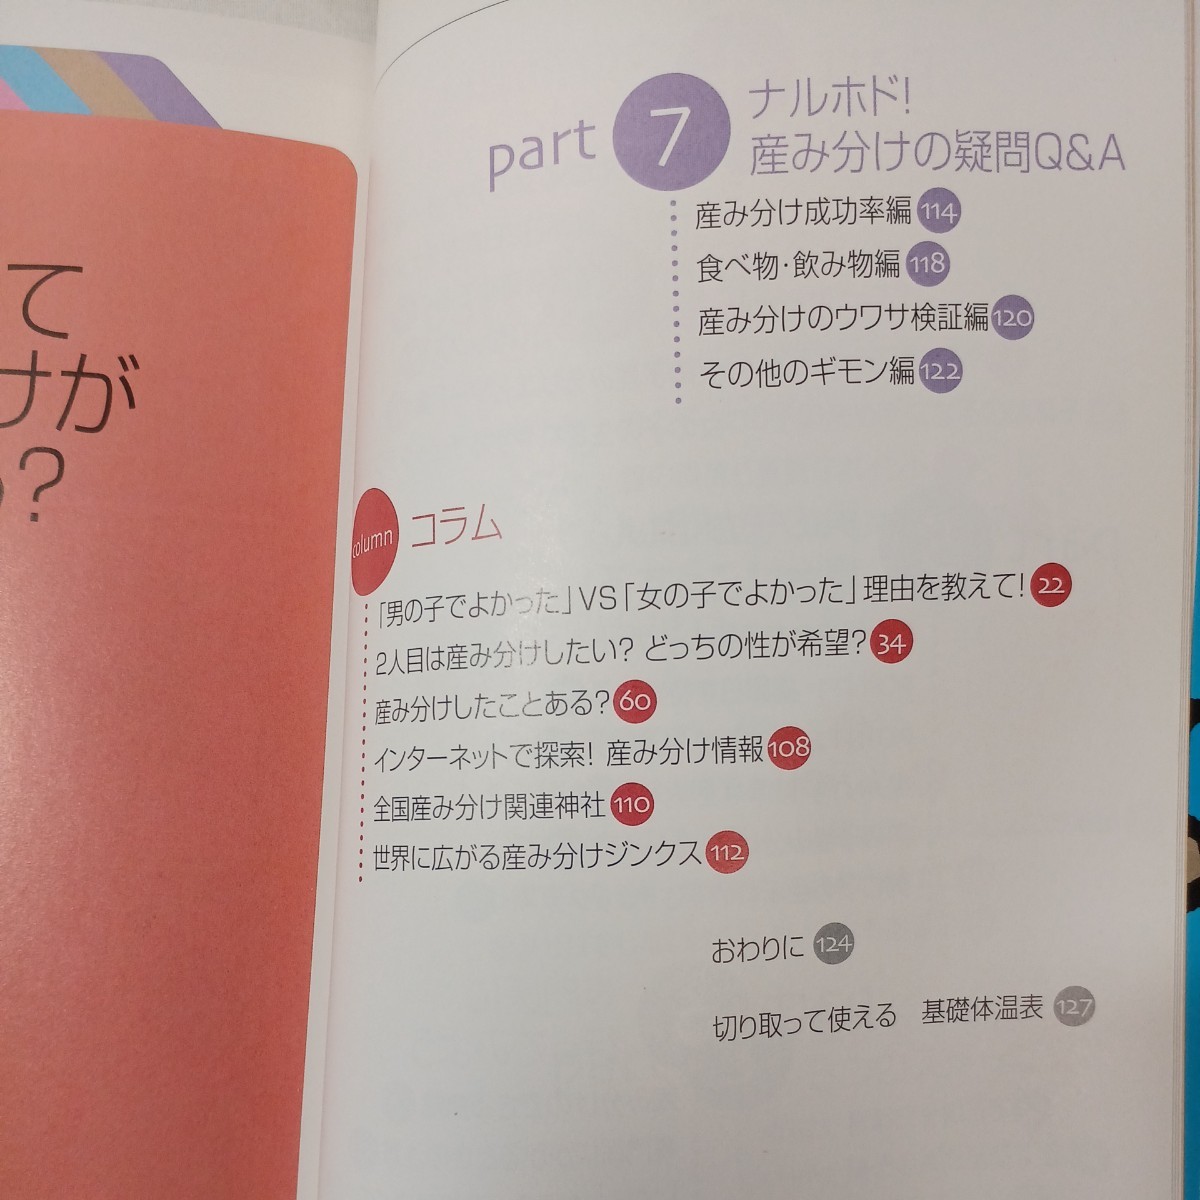 て
けが
?
part 7 ナルホド!
産み分けの疑問Q&A
産み分け成功率編 114
食べ物・飲み物編 118
産み分けのウワサ検証編 120
その他のギモン編 122
column コラム
「男の子でよかった」VS「女の子でよかった」理由を教えて! 22
2人目は産み分けしたい? どっちの性が希望? 34
産み分けしたことある? 60
インターネットで探索! 産み分け情報 108
全国産み分け関連神社 110
世界に広がる産み分けジンクス 112
おわりに 124
切り取って使える 基礎体温表 127